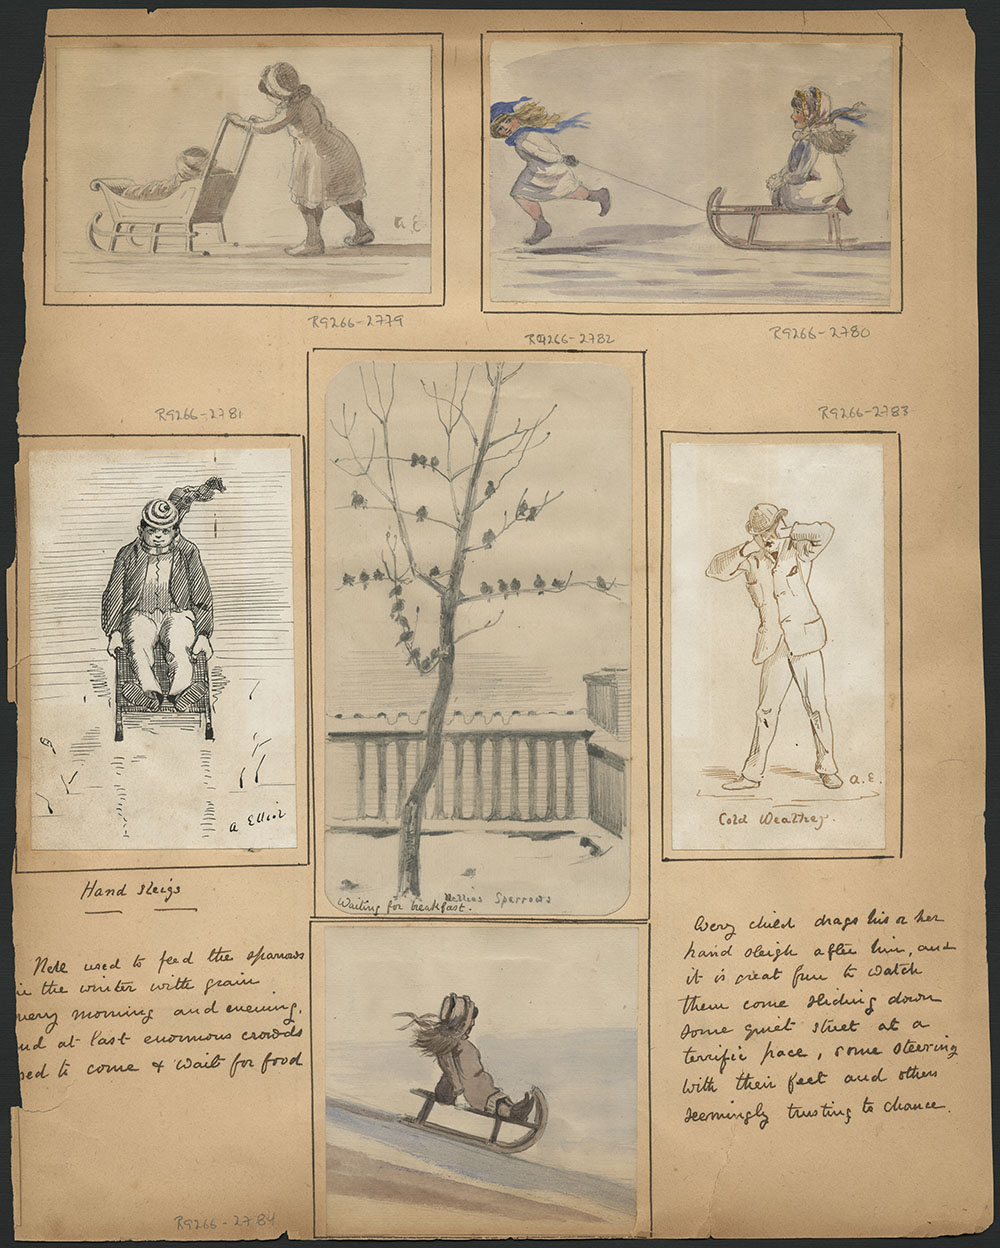 a. E.
R9266-2779
R9266-2782
R9266-2780
R9266-2781
R9266-2783
A Elliot
Hand sleigs
Waiting for breakfast.
Nellies Sparrows
a. E.
Cold Weather.
Nell used to feed the sparrows
in the winter with grain
every morning and evening,
and at last enormous crowds
used to come & wait for food
Every child drags his or her
hand sleigh after him, and
it is great fun to watch
them come sliding down
some quiet street at a
terrific pace, some steering
with their feet and others
seemingly trusting to chance.
R9266-2784